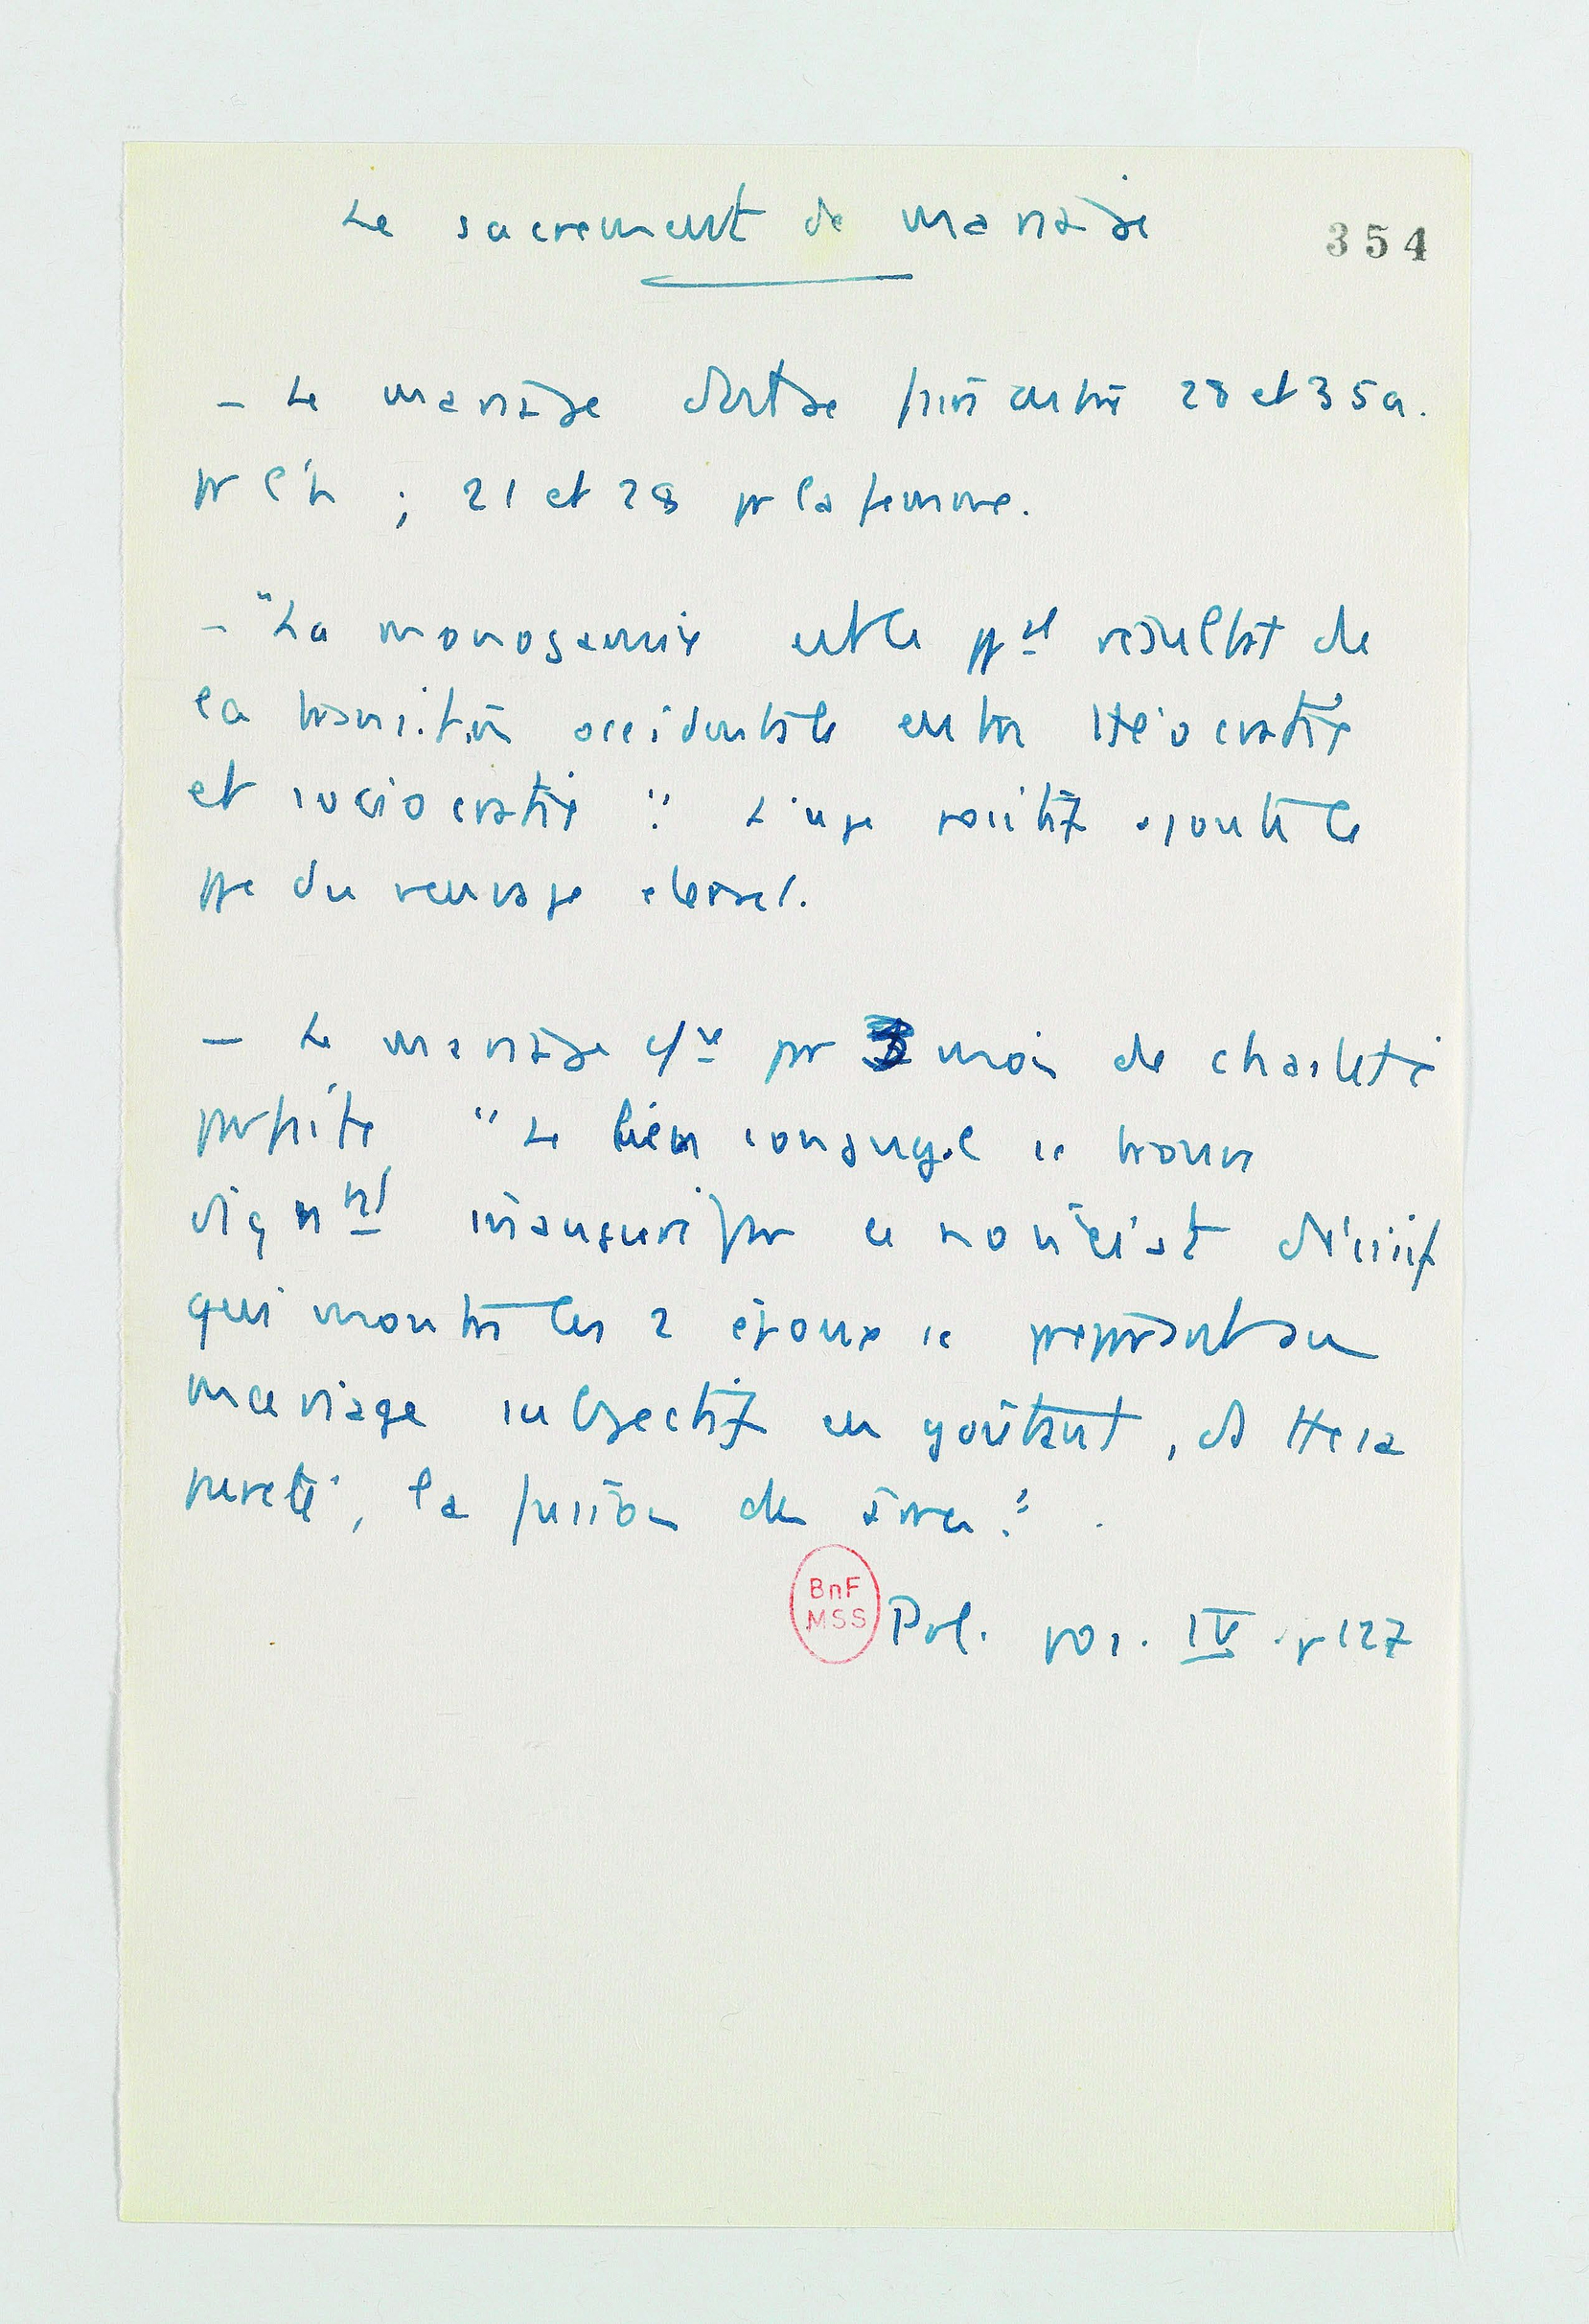 Le sacrement de mariage
354
– Le mariage doit se faire entre 28 et 35 a.
pr l'h ; 21 et 28 pr la femme.
– "La monogamie est le ppal résultat de
la transition occidentale entre théocratie
et sociocratie". L'usge positif ajoute le
ppe du veuvage éternel.
– Le mariage cce pr 3 mois de chasteté
parfaite "Le lien conjugal se trouve
dignnt inauguré par ce noviciat décisif
qui montre les 2 époux se préparant au
mariage subjectif en goûtant, ds tte sa
pureté, la fusion des âmes".
BnF
MSS
Pol. pos. IV. p 127